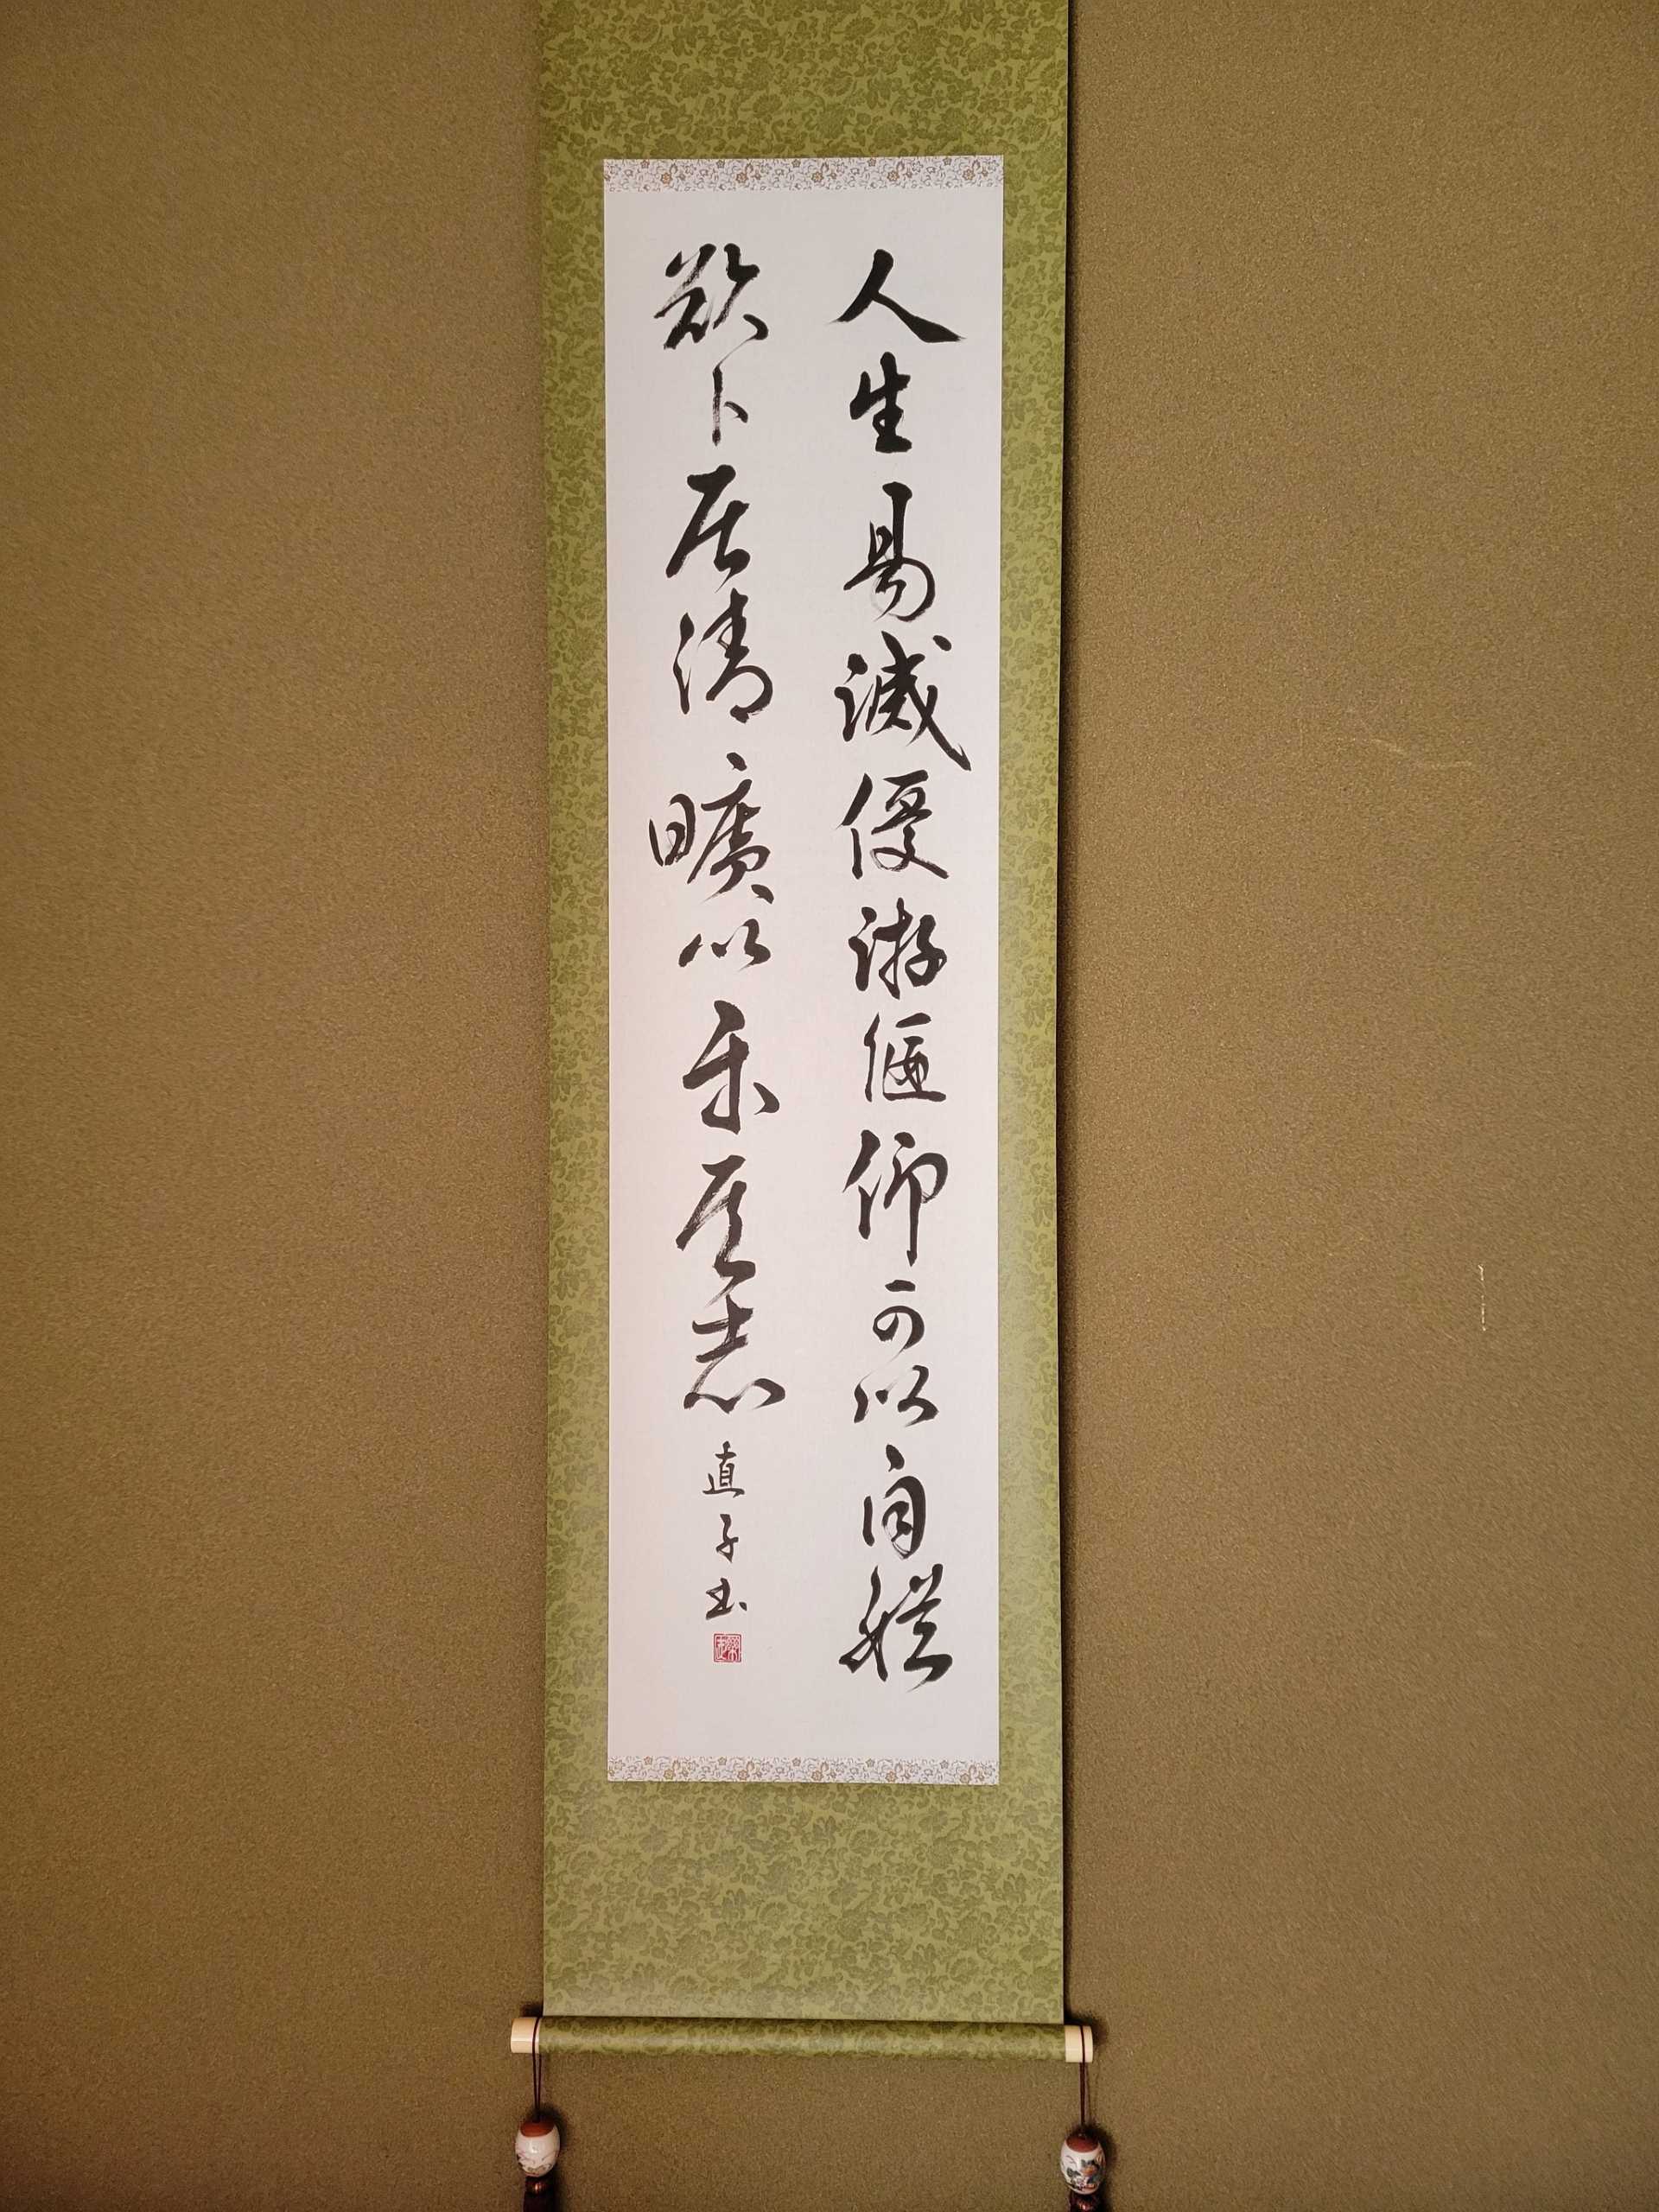 人生易滅優游偃仰可以自娯
欲卜居清曠以樂其志
直子書